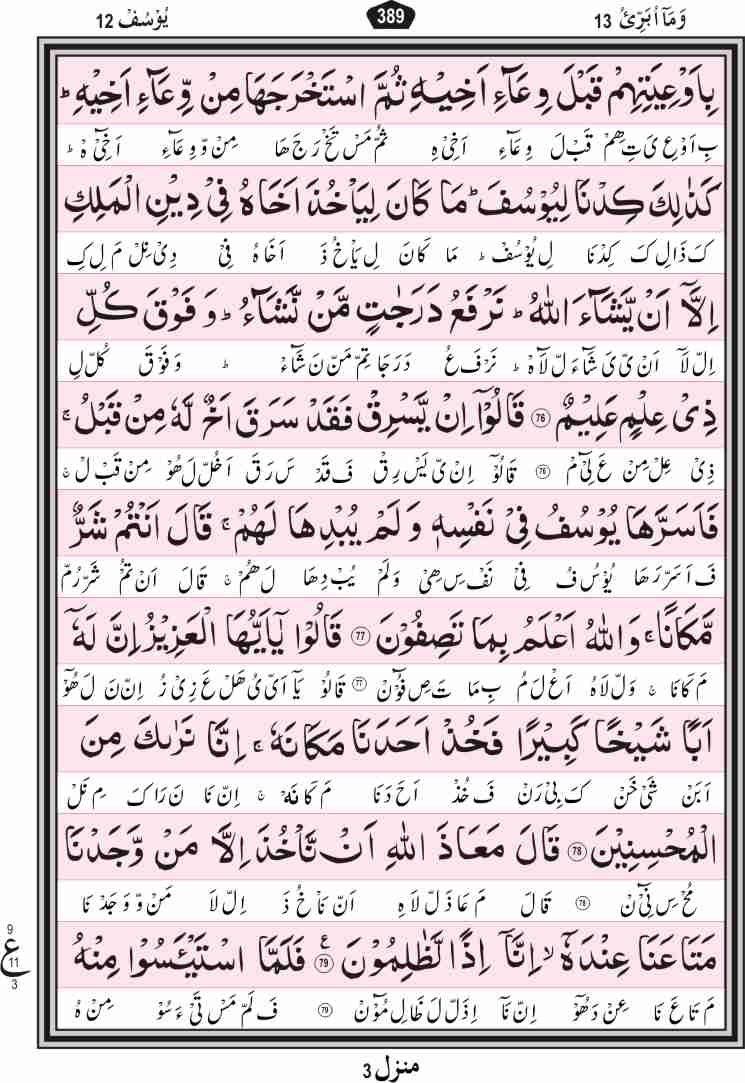 وَمَآ اُبَرِّئُ 13
389
يُوْسُفْ 12
بِاَوْعِيَتِهِمْ قَبْلَ وِعَآءِ اَخِيْهِ ثُمَّ اسْتَخْرَجَهَا مِنْ وِّعَآءِ اَخِيْهِ ؕ
بِ اَوْ عِ یَ تِ هِمْ قَبْ لَ وِ عَآءِ اَخِیْ هِ ثُمْ مَسْ تَخْ رَ جَ هَا مِنْ وِوِ عَآءِ اَخِیْ هْ ؕ
كَذٰلِكَ كِدْنَا لِيُوْسُفَ ؕ مَا كَانَ لِيَاْخُذَ اَخَاهُ فِىْ دِيْنِ الْمَلِكِ
كَ ذَالِ كَ كِدْ نَا لِ يُوْ سُفْ ؕ مَا كَانَ لِ يَاْ خُ ذَ اَخَا هُ فِیْ دِیْ نِلْ مَ لِ كِ
اِلَّاۤ اَنْ يَّشَآءَ اللّٰهُ ؕ نَرْفَعُ دَرَجٰتٍ مَّنْ نَّشَآءُ ؕ وَ فَوْقَ كُلِّ
اِلْ لَآ اَنْ یْ یَ شَآءَ لْ لَاهْ ؕ نَرْ فَ عُ دَرَ جَا تِمْ مَنْ نَ شَآءْ ؕ وَ فَوْ قَ كُلْ لِ
ذِىْ عِلْمٍ عَلِيْمٌ ﴿76﴾ قَالُوْۤا اِنْ يَّسْرِقْ فَقَدْ سَرَقَ اَخٌ لَّهٗ مِنْ قَبْلُ ۚ
ذِیْ عِلْ مِنْ عَ لِیْ مْ ﴿76﴾ قَالُوْٓ اِنْ یْ یَسْ رِقْ فَ قَدْ سَ رَ قَ اَخُلْ لَ هُوْ مِنْ قَبْ لْ ۚ
فَاَسَرَّهَا يُوْسُفُ فِىْ نَفْسِهٖ وَ لَمْ يُبْدِهَا لَهُمْ ۚ قَالَ اَنْتُمْ شَرٌّ
فَ اَسَرْ رَ هَا يُوْ سُ فُ فِیْ نَفْ سِ هِیْ وَ لَمْ يُبْ دِهَا لَ هُمْ ۚ قَالَ اَنْ تُمْ شَرْ رُمْ
مَّكَانًا ۚ وَاللّٰهُ اَعْلَمُ بِمَا تَصِفُوْنَ ﴿77﴾ قَالُوْا يٰۤاَيُّهَا الْعَزِيْزُ اِنَّ لَهٗۤ
مَ كَانَا ۚ وَلْ لَاهُ اَعْ لَ مُ بِ مَا تَ صِ فُوْنْ ﴿77﴾ قَالُوْ يَآ اَیْ یُ هَلْ عَ زِیْ زُ اِنْ نَ لَ هُوْٓ
اَبًا شَيْخًا كَبِيْرًا فَخُذْ اَحَدَنَا مَكَانَهٗ ۚ اِنَّا نَرٰىكَ مِنَ
اَبَنْ شَیْ خَنْ كَ بِیْ رَنْ فَ خُذْ اَحَ دَ نَا مَ كَا نَهْ ۚ اِنْ نَا نَ رَا كَ مِ نَلْ
الْمُحْسِنِيْنَ ﴿78﴾ قَالَ مَعَاذَ اللّٰهِ اَنْ نَّاْخُذَ اِلَّا مَنْ وَّجَدْنَا
مُحْ سِ نِیْ نْ ﴿78﴾ قَالَ مَ عَا ذَ لْ لَا هِ اَنْ نَاْ خُ ذَ اِلْ لَا مَنْ وْ وَ جَدْ نَا
مَتَاعَنَا عِنْدَهٗۤ ۙ اِنَّاۤ اِذًا لَّظٰلِمُوْنَ ﴿79﴾ ع فَلَمَّا اسْتَيْـَٔسُوْا مِنْهُ
مَ تَا عَ نَا عِنْ دَ هُوْٓ اِنْ نَآ اِذَلْ لَ ظَالِ مُوْنْ ﴿79﴾ فَ لَمْ مَسْ تَیْ ءَ سُوْ مِنْ هُ
9
ع
11
3
منزل 3